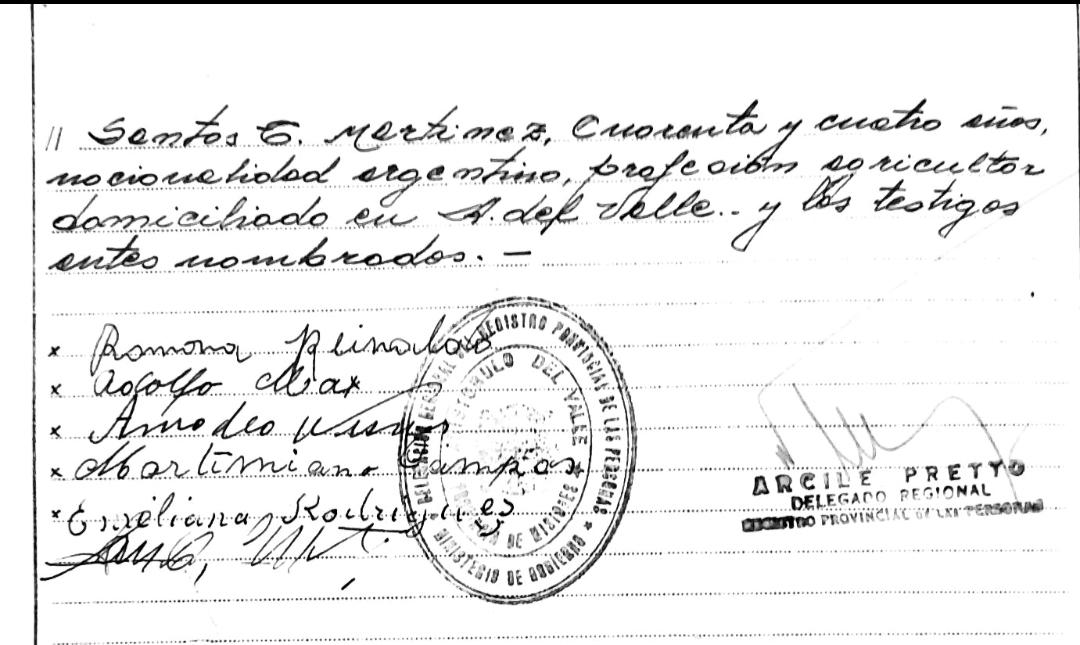 // Santos E. Martinez, Cuarenta y cuatro años,
nacionalidad argentino, profesión agricultor
domiciliado en A. del Valle.. y los testigos
antes nombrados. —
x Ramona Reinaldo
x Adolfo Max
x Amadeo
x Martimiano Campos
x Emiliana Rodrigues
DELEGACION REGIONAL DEL REGISTRO PROVINCIAL DE LAS PERSONAS
ARISTOBULO DEL VALLE
PROVINCIA DE MISIONES
MINISTERIO DE GOBIERNO
ARCILE PRETTO
DELEGADO REGIONAL
REGISTRO PROVINCIAL DE LAS PERSONAS